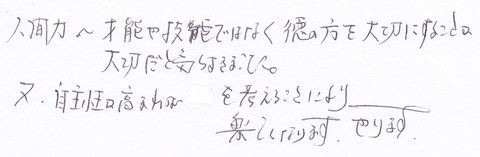 人間力～才能や技能ではなく徳の方を大切にすることは
大切だと気づきました。
又、自主性の高まれば を考えることにより
楽しくなります。やります。